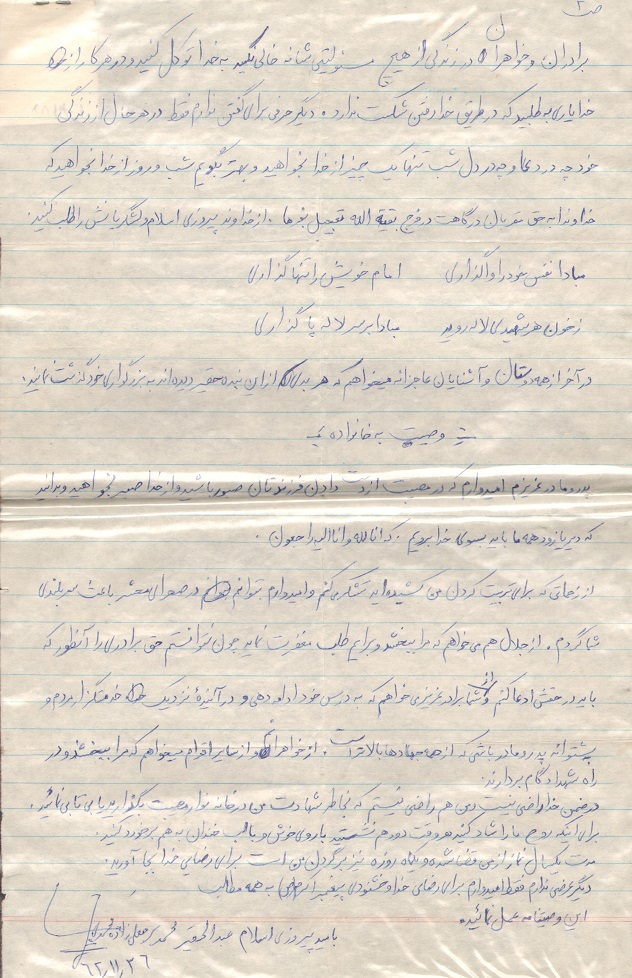 ص ۲
برادران و خواهران در زندگی از هیچ مسئولیتی شانه خالی نکنید به خدا توکل کنید و در هر کار از
خدا یاری بطلبید که در طریق خدا رفتن شکست ندارد. دیگر حرفی برای گفتن ندارم فقط در هر حال از زندگی
خود چه در دعا و چه در دل شب تنها یک چیز از خدا بخواهید و بهتر بگویم شب و روز از خدا بخواهید که
خداوندا به حق مقربان درگاهت در فرج بقیة الله تعجیل بفرما. از خداوند پیروزی اسلام و لشگریانش را طلب کنید.
مبادا نفس خود را واگذاری امام خویش را تنها گذاری
ز خون هر شهیدی لاله روید مبادا بر سر لاله پا گذاری
در آخر از همه دوستان و آشنایان عاجزانه میخواهم که هر بدی از این بنده حقیر دیده‌اند به بزرگواری خود گذشت نمایند.
وصیت به خانواده
پدر و مادر عزیزم امیدوارم که در مصیبت از دست دادن فرزندتان صبور باشید و از خدا صبر بخواهید و بدانید
که دیر یا زود همه ما باید بسوی خدا برویم. که انا لله و انا الیه راجعون.
از زحاتی که برای تربیت کردن من کشیده‌اید تشکر می کنم و امیدوارم بتوانم در صحرای محشر باعث سربلندی
شما گردم. از جلال هم می خواهم که مرا ببخشد و برایم طلب مغفرت نماید چون نتوانستم حق برادری را آنطور که
باید در حقش ادا کنم و از شما برادر عزیز می خواهم که به درس خود ادامه دهی و در آینده نزدیک خدمتگزار مردم و
پشتوانه پدر و مادر باشی که از همه جهادها بالاتر است. از خواهرانم و از سایر اقوام میخواهم که مرا ببخشند و در
راه شهدا گام بردارند.
در ضمن خدا راضی نیست و من هم راضی نیستم که بخاطر شهادت من در خانه نوار وصیت بگذارید یا بی تابی نمائید.
برای آنکه روح ما را شاد کنید هر وقت دور هم نشستید با روی خوش و با لب خندان به هم برخورد کنید.
مدت یکسال نماز از من قضا شده و یکماه روزه نیز بر گردن من است برای رضای خدا بجا آورید.
دیگر عرضی ندارم فقط امیدوارم برای رضای خدا و خشنودی پیغمبر اکرم (ص) به همه مطالب
این وصیتنامه عمل نمائید.
با امید پیروزی اسلام عبدالحقیر محمد
۶۲/۱۱/۲۶